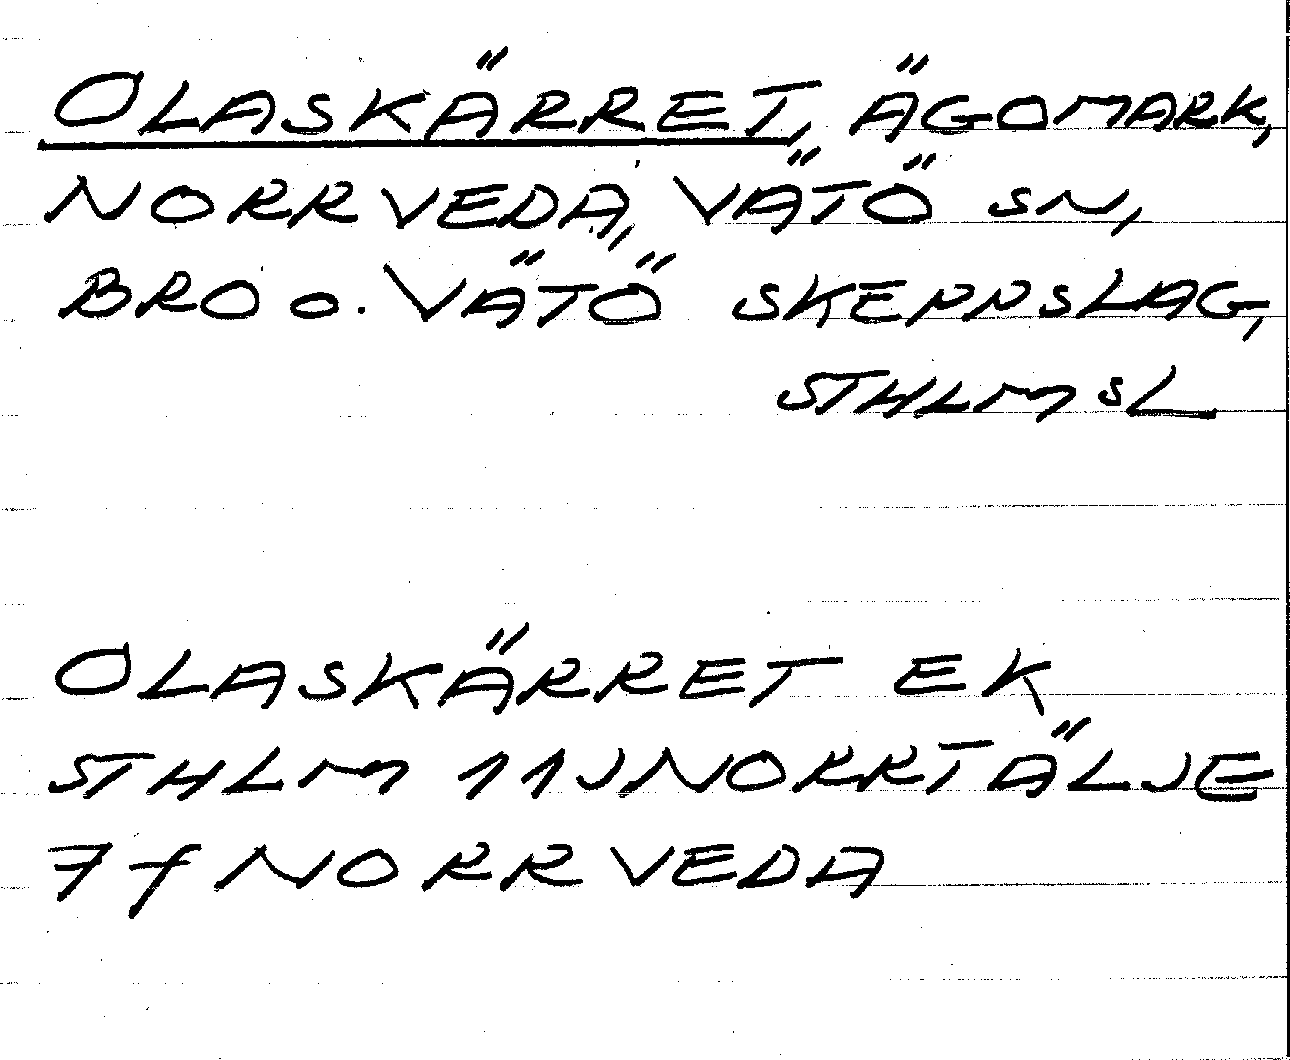 OLASKÄRRET, ÄGOMARK,
NORRVEDA, VÄTÖ SN,
BRO o. VÄTÖ SKEPPSLAG,
STHLMS L
OLASKÄRRET EK
STHLM 11J NORRTÄLJE
7f NORRVEDA